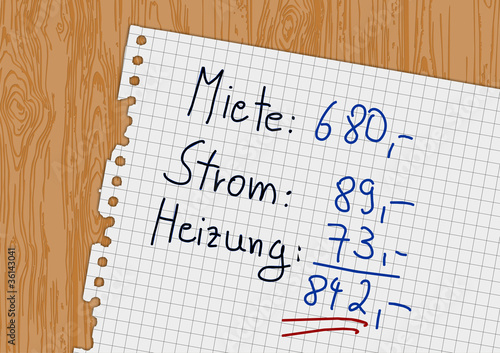 Miete: 680,-
Strom: 89,-
Heizung: 73,-
842,-
Adobe Stock | #36143041